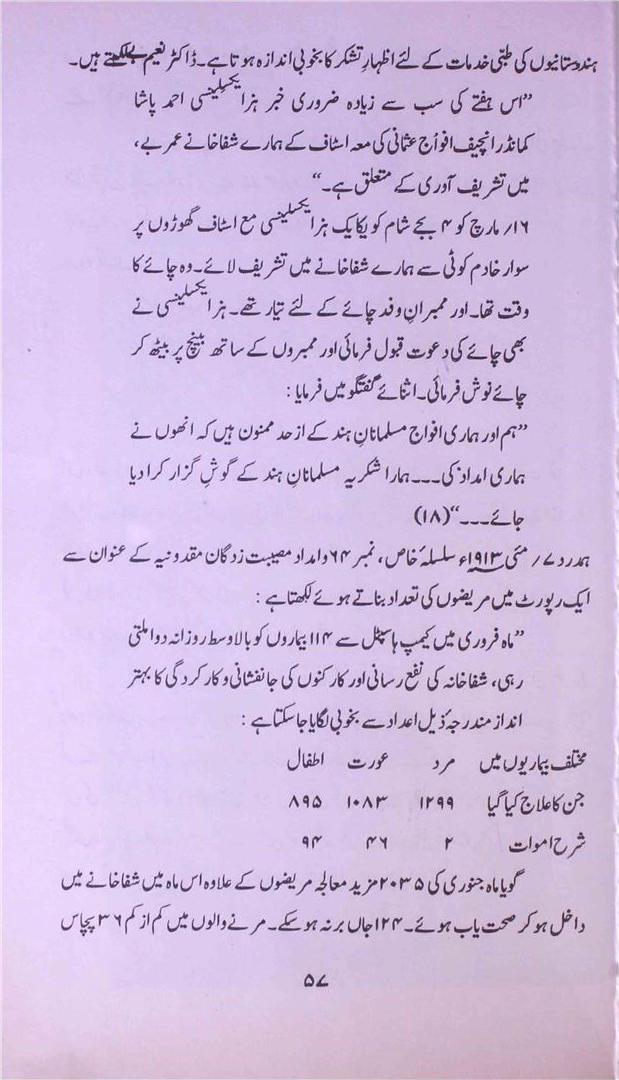 ہندوستانیوں کی طبّی خدمات کے لئے اظہارِ تشکر کا بخوبی اندازہ ہوتا ہے۔ ڈاکٹر نعیم لکھتے ہیں۔
”اس ہفتے کی سب سے زیادہ ضروری خبر ہزا یکسلینسی احمد پاشا
کمانڈر انچیف افواج عثمانی کی معہ اسٹاف کے ہمارے شفاخانے عمربے،
میں تشریف آوری کے متعلق ہے۔“
۱۶/ مارچ کو ۴ بجے شام کو یکایک ہزا یکسلینسی مع اسٹاف گھوڑوں پر
سوار خادم کوئی سے ہمارے شفاخانے میں تشریف لائے۔ وہ چائے کا
وقت تھا۔ اور ممبرانِ وفد چائے کے لئے تیار تھے۔ ہزا یکسلینسی نے
بھی چائے کی دعوت قبول فرمائی اور ممبروں کے ساتھ بینچ پر بیٹھ کر
چائے نوش فرمائی۔ اثنائے گفتگو میں فرمایا:
”ہم اور ہماری افواج مسلمانانِ ہند کے از حد ممنون ہیں کہ انھوں نے
ہماری امداد کی۔۔۔ ہمارا شکریہ مسلمانانِ ہند کے گوش گزار کرا دیا
جائے۔۔۔“ (۱۸)
ہمدرد ۷/ مئی ۱۹۱۳ء سلسلۂ خاص، نمبر ۶۴ و امداد مصیبت زدگان مقدونیہ کے عنوان سے
ایک رپورٹ میں مریضوں کی تعداد بتاتے ہوئے لکھتا ہے:
”ماہ فروری میں کیمپ ہاسپٹل سے ۱۱۴ بیماروں کو بالاوسط روزانہ دوا ملتی
رہی، شفاخانہ کی نفع رسانی اور کارکنوں کی جانفشانی و کارکردگی کا بہتر
انداز مندرجہ ذیل اعداد سے بخوبی لگایا جا سکتا ہے:
مختلف بیماریوں میں مرد عورت اطفال
جن کا علاج کیا گیا ۱۲۹۹ ۱۰۸۳ ۸۹۵
شرح اموات ۲ ۴۶ ۹۴
گویا ماہ جنوری کی ۲۰۳۵ مزید معالجہ مریضوں کے علاوہ اس ماہ میں شفاخانے میں
داخل ہو کر صحت یاب ہوئے۔ ۱۲۴ جاں بر نہ ہو سکے۔ مرنے والوں میں کم از کم ۳۶ پچاس
۵۷